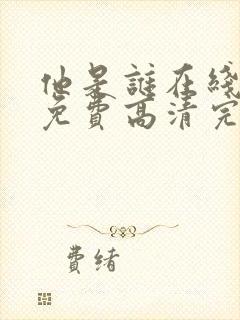 他是誰在綫
免費高清完
費緒